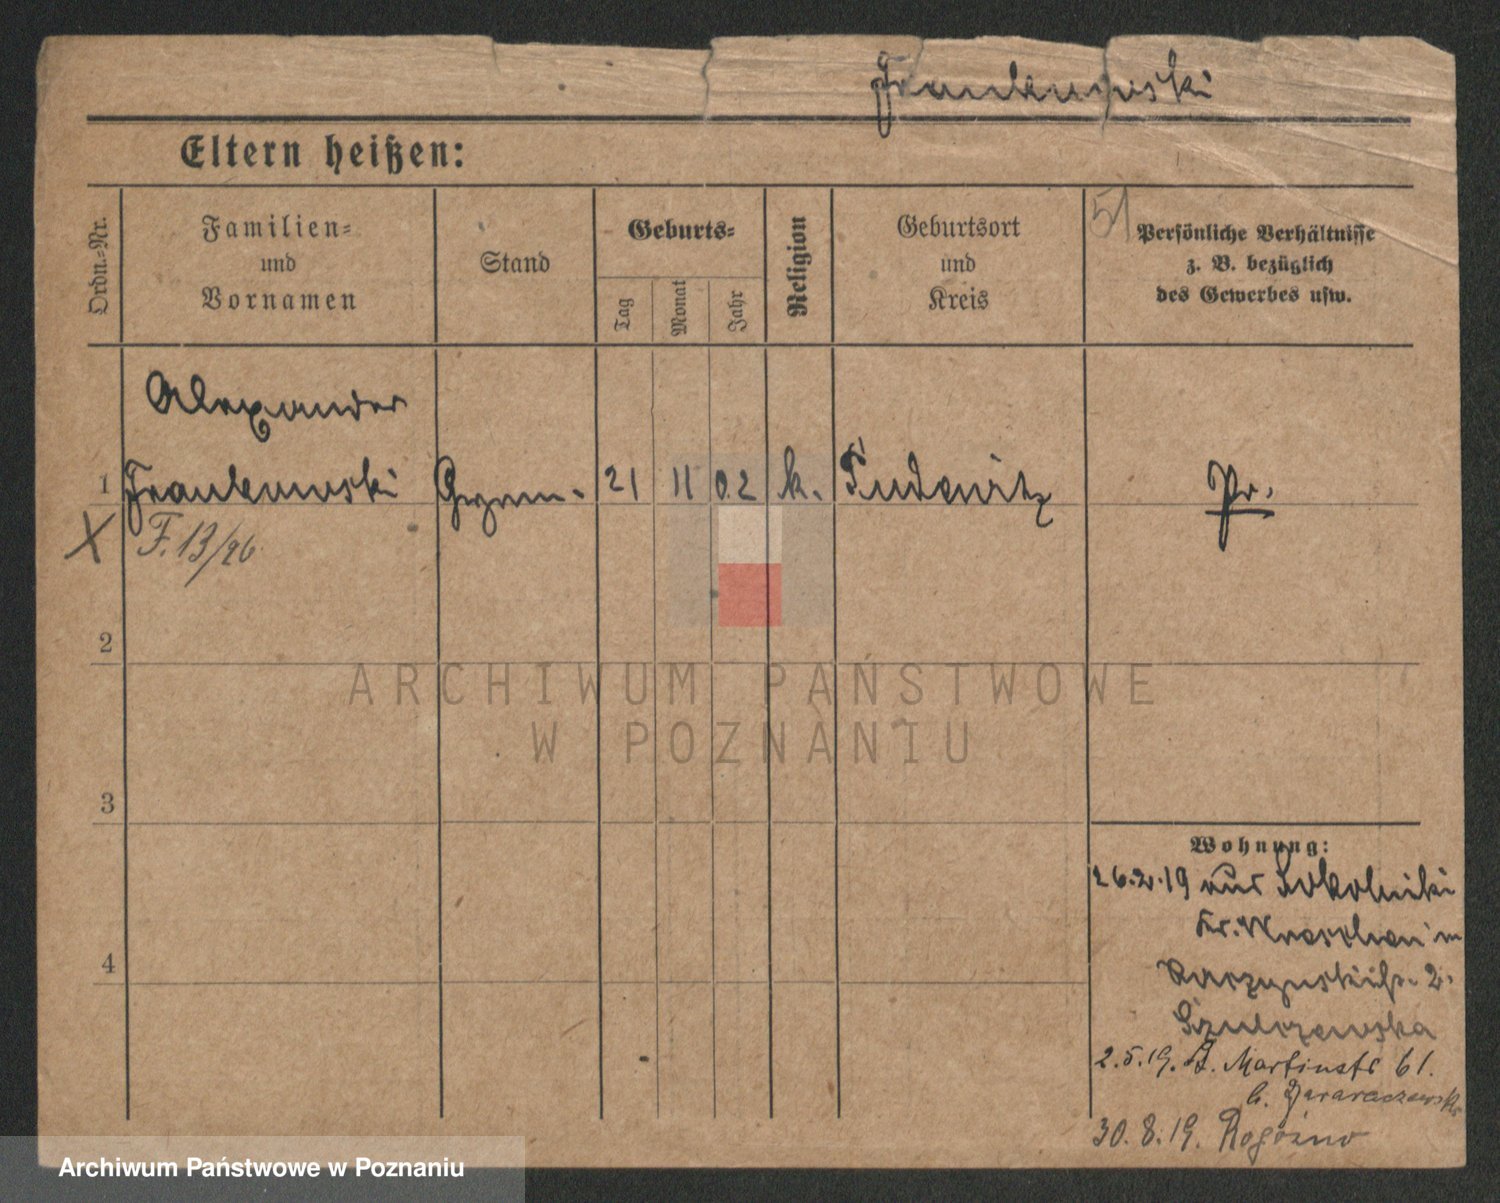 Frankowski
Eltern heißen:
Ordn.-Nr.
Familien-
und
Vornamen
Stand
Geburts-
Tag
Monat
Jahr
Religion
Geburtsort
und
Kreis
51
Persönliche Verhältnisse
z. B. bezüglich
des Gewerbes usw.
Alexander
1 Frankowski Gymn. 21 11 02 k. Pudewitz Pr.
X F. 13/26
2
3
4
Wohnung:
26.2.19 aus Sokolniki
Kr. Wreschen in
2.
Szulczewska
2.5.19. St. Martinstr 61.
b.
30.8.19. Rogoźno
ARCHIWUM PAŃSTWOWE
W POZNANIU
Archiwum Państwowe w Poznaniu